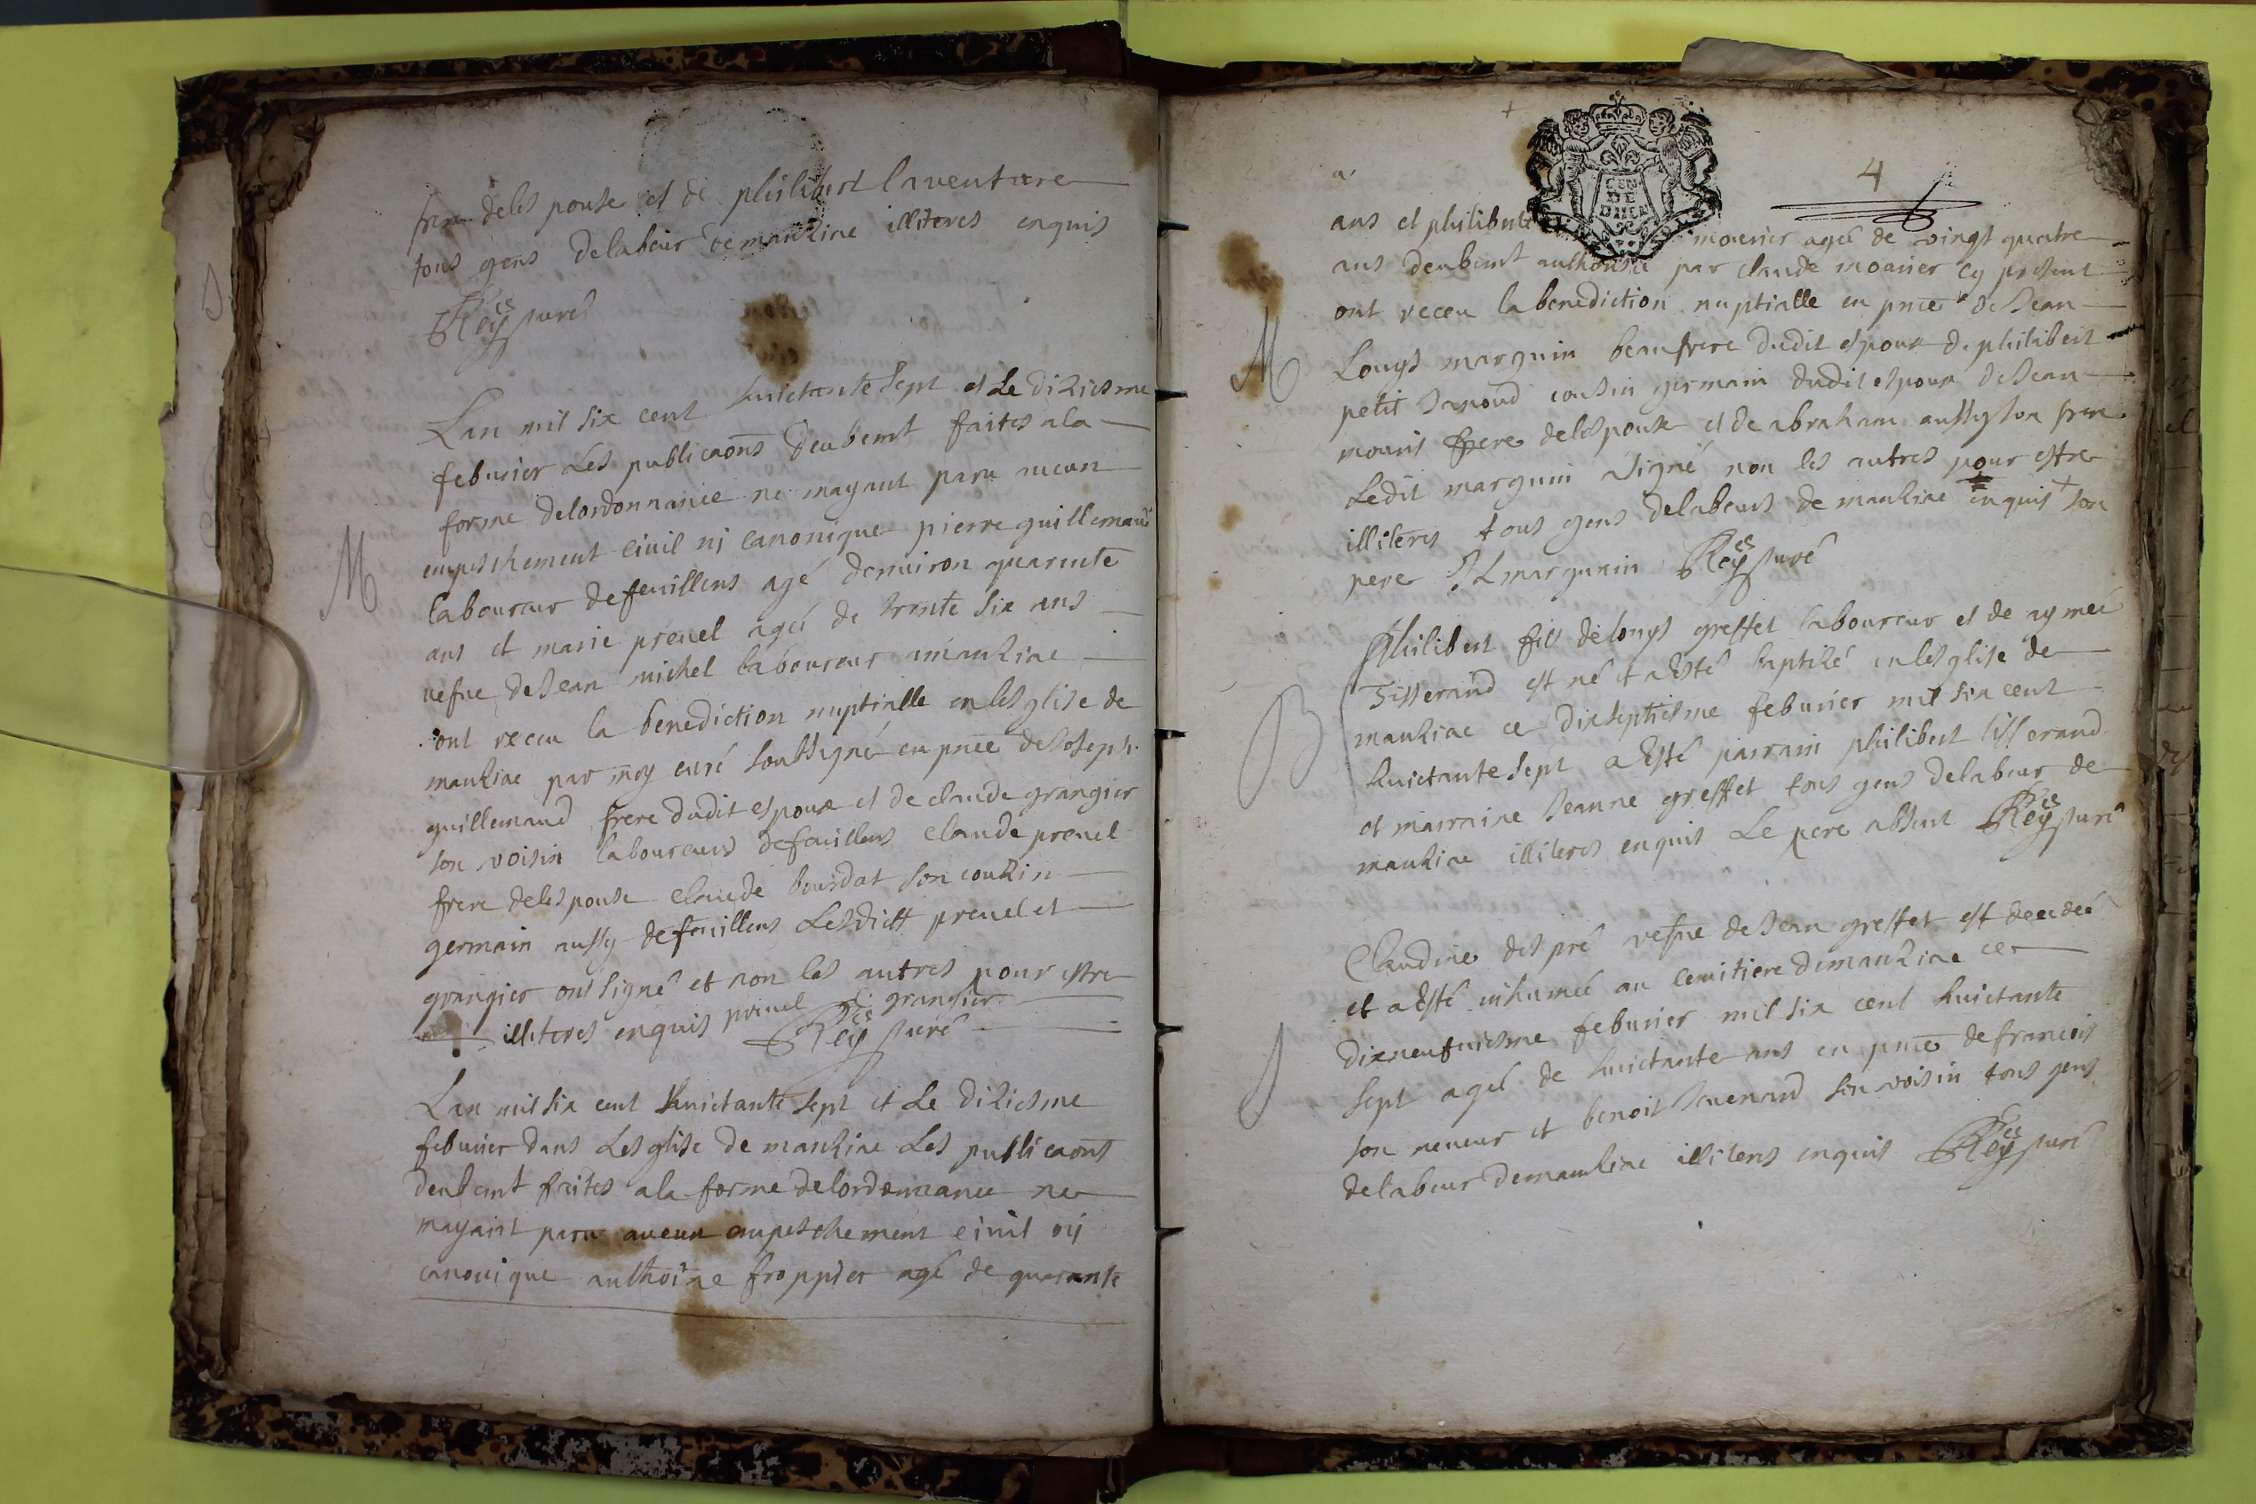 frere delespouse et de philibert laventure
tous gens delabeur de manziac illiteres enquis
Rey curé
Lan mil six cent huictante sept et Le diziesme
feburier Les publicaons deubemt faites ala
forme delordonnance ne mayant paru aucun
empeschement civil ni canonique pierre guillemaud
M
laboureur defeuillens agé denuiron quarente
ans et marie preuel agée de trente six ans
vefue de Jean michel laboureur a manziac
ont receu la benediction nuptialle en lesglise de
manziac par moy curé soubsigné en pnce de Joseph
guillemaud frere dudit espoux et de claude grangier
son voisin laboureurs defeuillens claude preuel
frere delespouse claude bourdat son couzin
germain aussy defeuillens Lesdicts preuel et
grangier ont signé et non les autres pour estre
illiteres enquis preuel c. grangier
Rey curé
Lan mil six cent huictante sept et Le diziesme
feburier dans Lesglise de manziac Les publicaons
deubemt faites ala forme delordonnance ne
mayant paru aucun empeschement civil ny
canonique anthoine froppier agé de quarante
GEN DE DIION
4
ans et philiberte mounier agée de vingt quatre
ans deubemt authorisée par claude mounier cy present
ont receu la benediction nuptialle en pnce de Jean
M
Louys marguin beaufrere dudit espoux de philibert
petit Janoud cousin germain dudit espoux de Jean
mounier frere delespouse et de abraham aussy son frere
Ledit marguin signé non les autres pour estre
illiteres tous gens delabeurs de manziac enquis + son
pere J L marguin Rey curé
Philibert fils de louys greffet laboureur et de aymée
Tisserand est né et a esté baptizé en lesglise de
B
manziac ce dixseptiesme feburier mil six cent
huictante sept a esté parrain philibert tisserand
et marraine Jeanne greffet tous gens delabeur de
manziac illiteres enquis Le pere absent Rey curé
Claudine despré vefue de Jean greffet est decedée
et a esté inhumée au cemitiere demanziac ce
dixneufuiesme feburier mil six cent huictante
sept agée de huictante ans en pnce de francois
son neueur et benoit Seuenard son voisin tous gens
delabeur demanziac illiteres enquis Rey curé